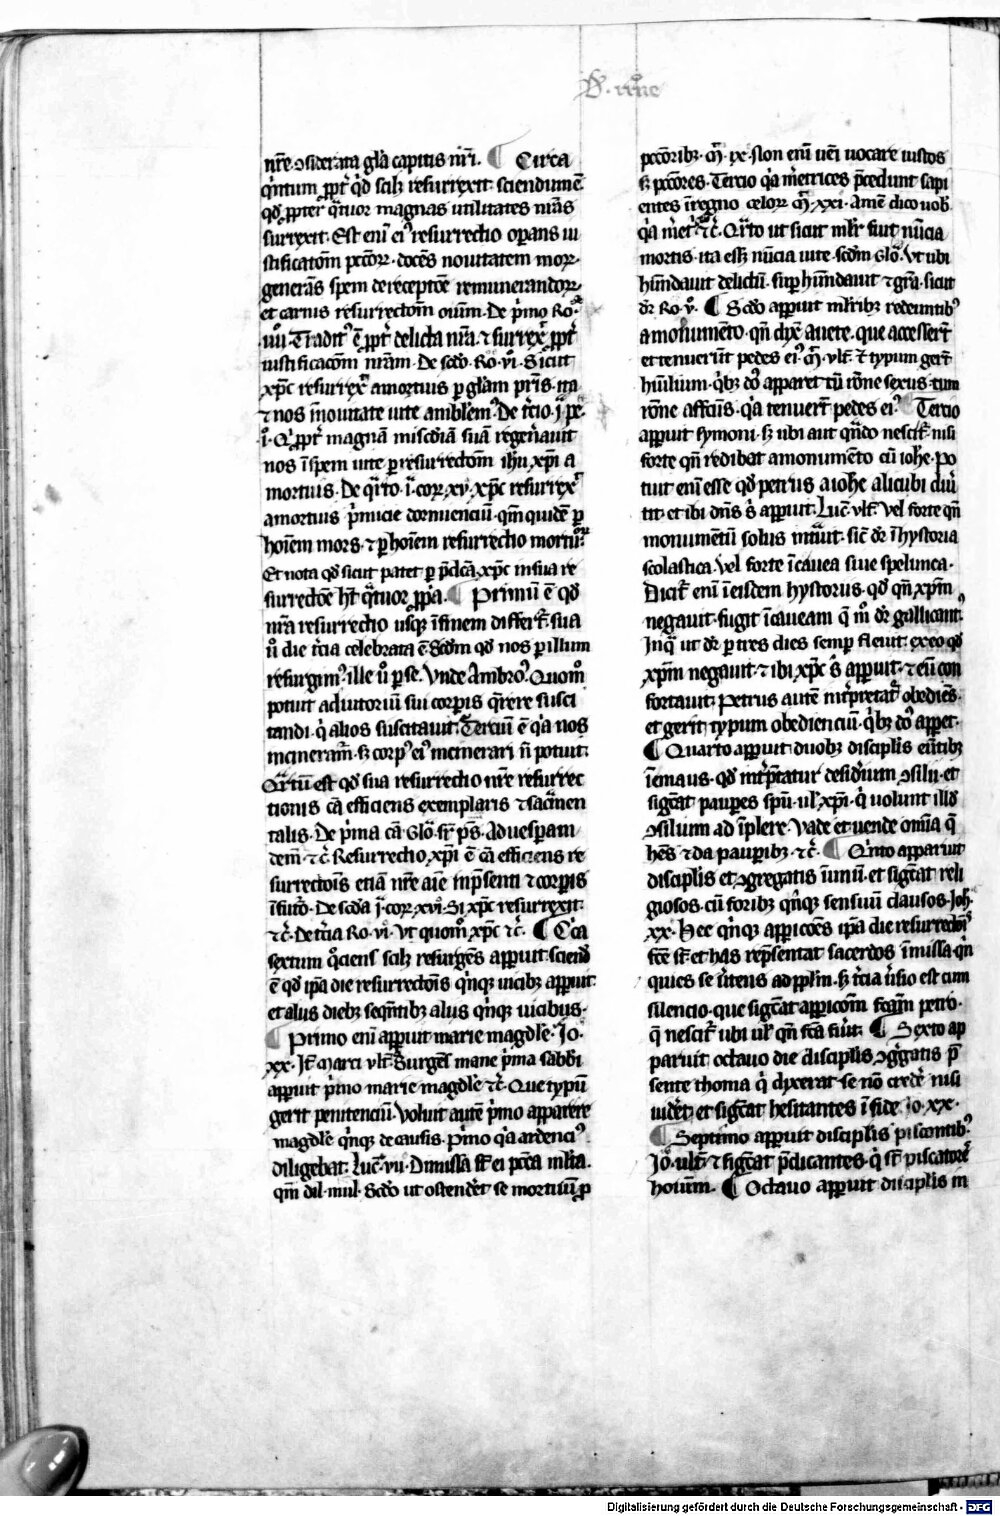 nr̄e ɔsiderata gl̄a capitis nr̄i. ¶ Circa
q̄ntum ꝓpt̄ qđ scilꝫ resurrexit sciendum ē
qđ ꝓpter q̄tuor magnas utilitates nr̄as
surrexit. Est enī eiꝰ resurrectio oꝑans iu
stificatōm pctōrꝝ. docēs nouitatem morꝝ.
generās spem de receptōe remunerandorꝝ
et carnis resurrectōm oīum. De p̄mo Ro.
iiii. Traditꝰ ē ꝓpt̄ delicta nr̄a. ⁊ surrex̄ ꝓpt̄
iustificacōm nr̄am. De scdo. Ro. vi. Sicut
xp̄c resurrex̄ a mortuis ꝑ gl̄am pr̄is. ita
⁊ nos ī nouitate uite amblēmꝰ. De t̄cio. j. pe.
i. Q̇ ꝓpt̄ magnā misc̄diā suā regen̄auit
nos ī spem uite ꝑ resurrectōm ih̄u xp̄i a
mortuis. De q̄rto. i. corꝝ. xv. xp̄c resurrex̄
a mortuis p̄micie dormienciū. qm̄ quidē ꝑ
hoīem mors. ⁊ ꝑ hoīem resurrectio mortuorꝝ
Et nota qđ sicut patet ꝑ p̄dc̄a xp̄c in sua re
surrectōe hꝫ q̄tuor ꝓp̄a. ¶ Primū ē qđ
nr̄a resurrectio usqꝫ ī finem differt̄. sua
ū die t̄cia celebrata ē. Scdm̄ qđ nos ꝑ illum
resurgimꝰ. ille ū ꝑ se. Vnde Ambroꝰ. Quomō
potuit adiutoriū sui corꝑis q̄rere susci
tandi. q̇ alios suscitauit. Terciū ē qꝛ nos
incineram̄. sꝫ corpꝰ eiꝰ incinerari n̄ potuit.
Q̄rtū est qđ sua resurrectio nr̄e resurrec
tionis cā efficiens exemplaris ⁊ sac̄men
talis. De p̄ma cā Glō. sr̄ p̄s. Ad uesꝑam
dem̄. ⁊c̄. Resurrectio xp̄i ē cā efficiens re
surrectōīs etiā nr̄e aīe in p̄senti ⁊ corꝑis
ī futō. De scda j. corꝝ. xvi. Si xp̄c resurrexit
⁊c̄. De t̄cia Ro. vi. Vt quomō xp̄c ⁊c̄. ¶ Cc̄a
sextum q̊ciens scilꝫ resurgēs apparuit sciend̄
ē qđ ip̄a die resurrectōīs q̄nqꝫ uicibꝫ apꝑuit
et alijs diebꝫ seq̄ntibꝫ alijs q̄nqꝫ uicibus.
¶ Primo enī apꝑuit marie magdl̄e. Jo.
xx. It̄ Marci vlt̄. Surgēs mane p̄ma sabb̄i
apꝑuit p̄mo marie magdl̄e ⁊c̄. Que typū
gerit penitenciū. Voluit autē p̄mo apparere
magdl̄e q̄nqꝫ de causis. P̄mo qꝛ ardenciꝰ
diligebat. Luc̄. vii. Dimissa st̄ ei pcc̄a ml̄ta.
qm̄ dil. mul. Scdo ut ostend̄et se mortuū ꝓ
pctōribꝫ. M̄. ix. Non enī uēi uocare iustos
sꝫ pctōres. Tercio qꝛ m̄etrices p̄cedunt sapi
entes ī regno celorꝝ M̄. xxi. Amē dico uob̄
qꝛ m̄et̄ ⁊c̄. Q̄rto ut sicut ml̄r fuit nūcia
mortis. ita ess̄ nūcia uite. scdm̄ Glō. Vt ubi
hūndauit delictū. suꝑ hūndauit ⁊ gr̄a. sicut
dr̄ Ro. v. ¶ Scdo apꝑuit ml̄ribꝫ redeuntibꝰ
a monumēto. qn̄ dix̄ auete. que accessert̄
et tenuer̄t pedes eiꝰ. M̄. vlt̄. ⁊ typum ger̄t
hūilium. q̇bꝫ dō apparet tū rōne sexus. tum
rōne affectus. qꝛ tenuert̄ pedes eiꝰ. ¶ Tercio
apꝑuit symoni. sꝫ ubi aut qn̄do nescit̄. nisi
forte qn̄ redibat a monumēto cū ioh̄e. po
tuit enī esse qđ petrus a ioh̄e alicubi diu̇
tit. et ibi dn̄s s̄ apꝑuit. Luc̄. vlt̄. Vel forte qn̄
monumētū solus intuit. sic̄ dr̄ ī hystoria
scolastica. Vel forte ī cauea siue spelunca.
Dicit̄ enī ī eisdem hystorijs. qđ qn̄ xpm̄
negauit. fugit ī caueam q̄ m̊ dr̄ gallicant.
In q̄ ut dr̄ ꝑ tres dies semꝑ fleuit. ex eo qđ
xpm̄ negauit. ⁊ ibi xp̄c s̄ apꝑuit. ⁊ eū con
fortauit. Petrus autē int̄pretat̄ obediēs.
et gerit typum obedienciū. q̇bꝫ dō apꝑet.
¶ Quarto apꝑuit duobꝫ disciplis eūtibꝫ
ī emaus. qđ int̄ptatur desid̄ium ɔsilii. et
sigc̄at pauꝑes sp̄u. ul̓ xp̄i. q̇ uolunt illđ
ɔsilium adīplere. Vade et uende omīa q̄
hēs ⁊ da pauꝑibꝫ. ⁊c̄. ¶ Q̄nto apparuit
disciplis et ɔgregatis ī unū. et sigc̄at reli
giosos. cū foribꝫ q̄nqꝫ sensuū clausos. Joh̄.
xx. Hec q̄nqꝫ apꝑicōes ip̄a die resurrectōīs
fc̄e st̄. et has rep̄sentat sacerdos ī missa. q̄n
quies se u̇tens ad pplm̄. sꝫ t̄cia u̇sio est cum
silencio. que sigc̄at apꝑicōm fcām petro.
q̄ nescit̄ ubi ul̓ qn̄ fcā fūit. ¶ Sexto ap
paruit octauo die disciplis ɔg̊gatis p̄
sente thoma q̇ dixerat se nō cred̄e nisi
uid̄et. et sigc̄at hesitantes ī fide. Jo. xx.
¶ Septimo apꝑuit disciplis piscantibꝰ
Jo. ult̄. ⁊ sigc̄at p̄dicantes. q̇ st̄ piscatorēs
hoīum. ¶ Octauo apꝑuit disciplis in
Digitalisierung gefördert durch die Deutsche Forschungsgemeinschaft - DFG